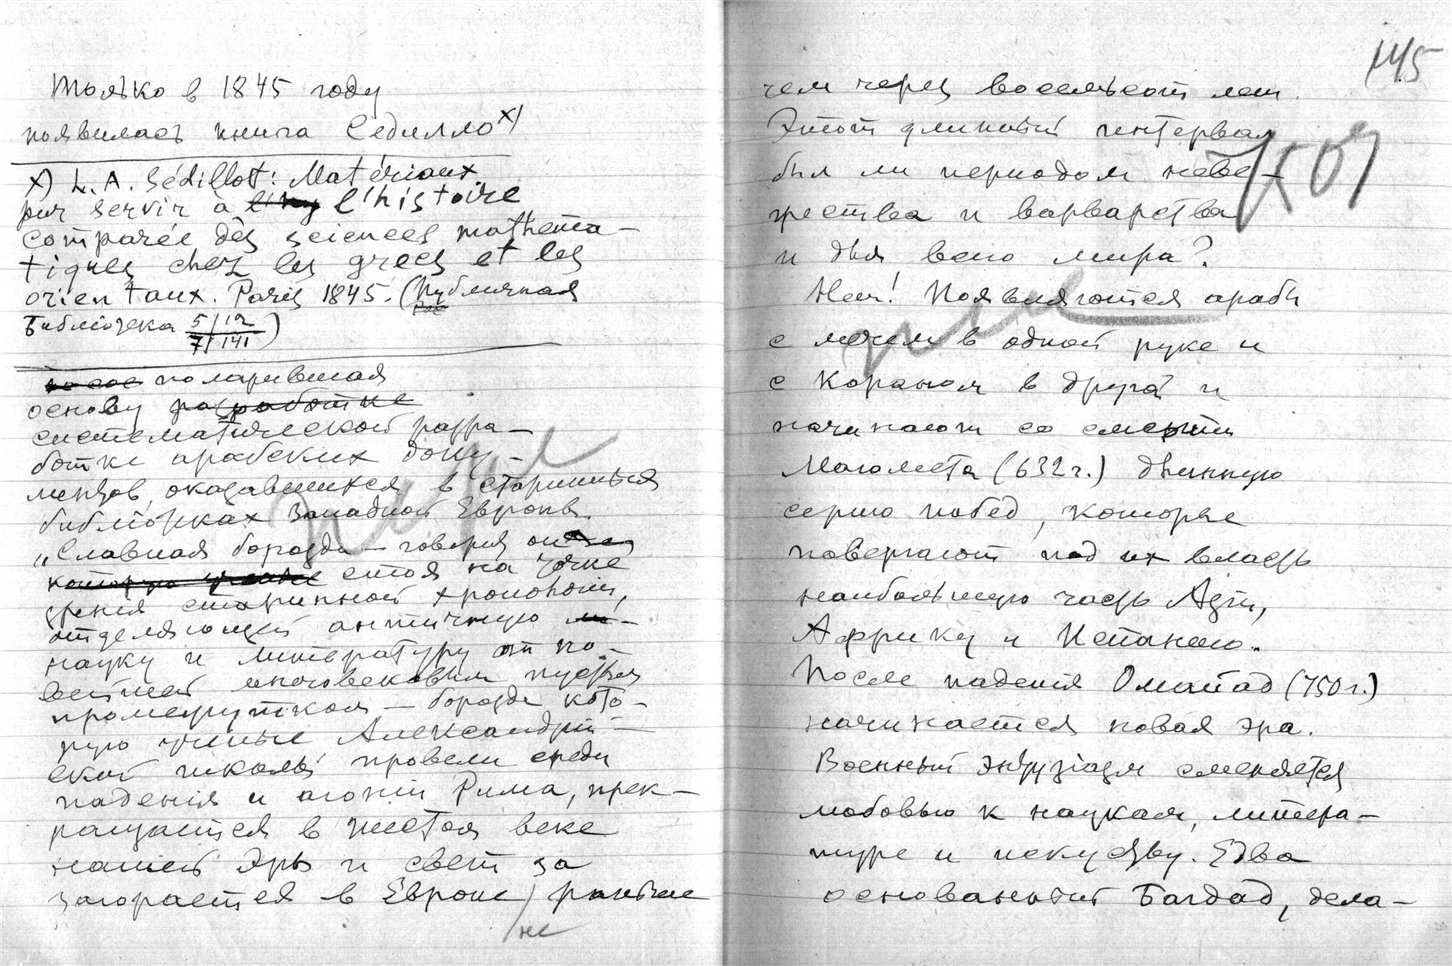 Только в 1845 году
появилась книга Седилло x)
x) L. A. Sédillot: Matériaux
pur servir à l'histoire
comparée des sciences mathéma-
tiques chez les grecs et les
orientaux. Paris 1845. (Публичная
Библіотека 5/12 7/141)
положившая
основу
систематической разра-
ботке арабских доку-
ментов, оказавшихся в старинных
библіотеках Западной Европы.
„Славная борозда — говорил он
стоя на точке
зрения старинной хронологіи,
отделяющей античную
науку и литературу от но-
вейшей многовековым пустым
промежутком — борозда кото-
рую ученые Александрій-
ской школы провели среди
паденія и агоніи Рима, прек-
ращается в шестом веке
нашей эры и свет за
загорается в Европе раньше
не
145
чем через восемьсот лет.
Этот длинный интервал
был ли периодом неве-
жества и варварства
и для всего мира?
Нет! Появляются арабы
с мечем в одной руке и
с Кораном в другой и
начинают со смерти
Магомета (632 г.) длинную
серию побед, которые
повергают под их власть
наибольшую часть Азіи,
Африку и Испанию.
После паденія Омайад (750 г.)
начинается новая эра.
Военный энтузіазм сменяется
любовью к наукам, литера-
туре и искусству. Едва
основанный Багдад, дела-